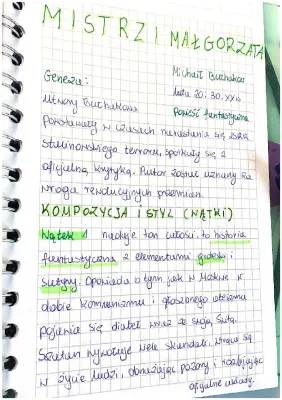 MISTRZ I MAŁGORZATA
Michaił Bułhakow
Geneza: lata 20 i 30. XX w
powieść fantastyczna
Utwory Bułhakowa
powstawały w czasach narastania się
stalinowskiego terroru, spotkały się z
oficjalną krytyką. Autor został uznany za
wroga rewolucyjnych przemian.
KOMPOZYCJA I STYL (WĄTKI)
Wątek 1 nadaje ton całości, to historia
fantastyczna z elementami groteski i
satyry. Opowiada o tym jak w Moskwie w
dobie komunizmu i głoszonego ateizmu
pojawia się diabeł wraz ze swoją świtą.
Szatan wywołuje wiele skandali, wtrąca się
w życie ludzi, obnażając pozory i
oficjalne układy.